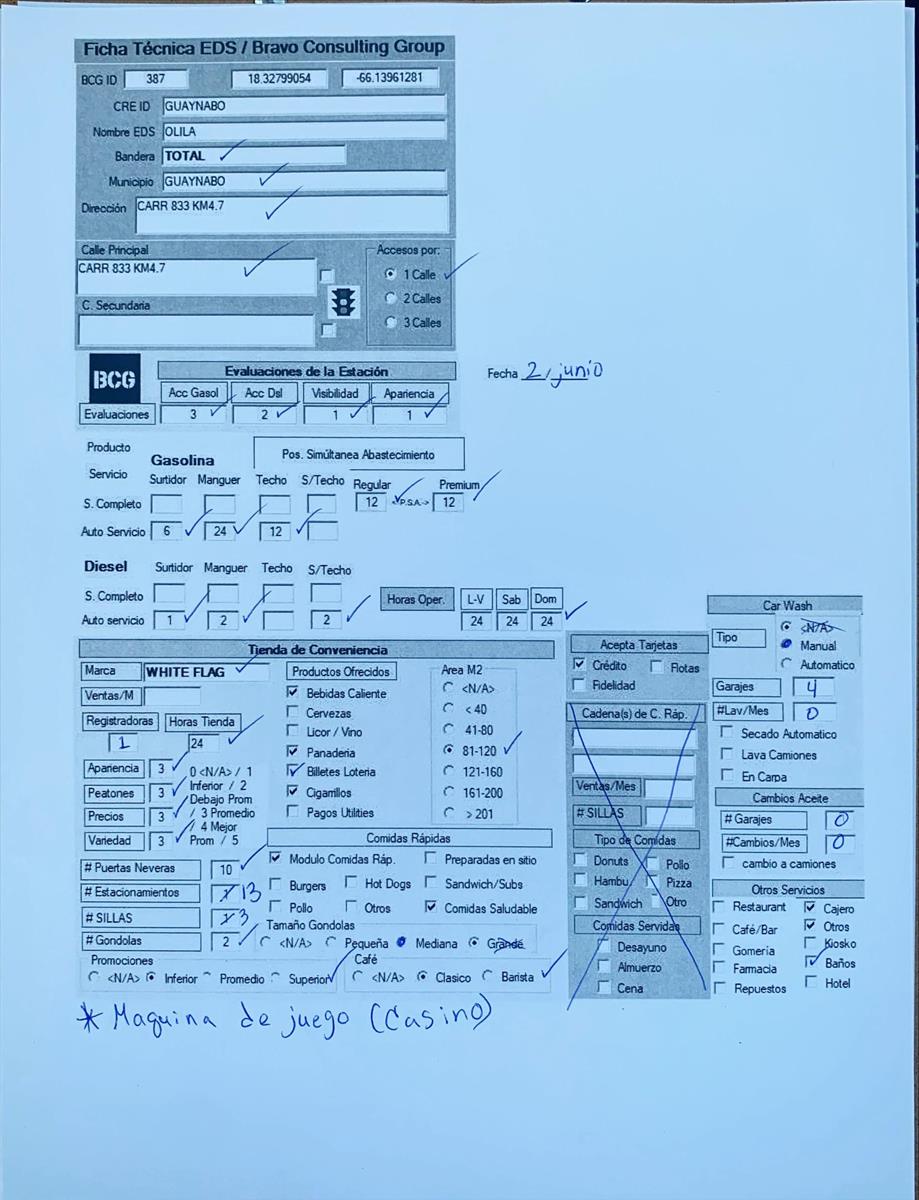 Ficha Técnica EDS / Bravo Consulting Group
BCG ID 387 18.32799054 -66.13961281
CRE ID GUAYNABO
Nombre EDS OLILA
Bandera TOTAL
Municipio GUAYNABO
Dirección CARR 833 KM4.7
Calle Principal
CARR 833 KM4.7
C. Secundaria
Accesos por:
1 Calle
2 Calles
3 Calles
BCG
Evaluaciones de la Estación
Acc Gasol Acc Dsl Visibilidad Apariencia
Evaluaciones 3 2 1 1
Fecha 2, junio
Producto
Servicio
Gasolina
Pos. Simúltanea Abastecimiento
Surtidor Manguer Techo S/Techo Regular Premium
S. Completo 12 <-P.S.A.-> 12
Auto Servicio 6 24 12
Diesel Surtidor Manguer Techo S/Techo
S. Completo
Auto servicio 1 2 2
Horas Oper. L-V Sab Dom
24 24 24
Tienda de Conveniencia
Marca WHITE FLAG
Ventas/M
Registradoras Horas Tienda
1 24
Apariencia 3
Peatones 3
Precios 3
Variedad 3
0 <N/A> / 1
Inferior / 2
Debajo Prom
/ 3 Promedio
/ 4 Mejor
Prom / 5
# Puertas Neveras 10
# Estacionamientos 13
# SILLAS 3
# Gondolas 2
Productos Ofrecidos
Bebidas Caliente
Cervezas
Licor / Vino
Panaderia
Billetes Loteria
Cigarrillos
Pagos Utilities
Area M2
<N/A>
< 40
41-80
81-120
121-160
161-200
> 201
Comidas Rápidas
Modulo Comidas Ráp. Preparadas en sitio
Burgers Hot Dogs Sandwich/Subs
Pollo Otros Comidas Saludable
Tamaño Gondolas
<N/A> Pequeña Mediana Grande
Promociones
<N/A> Inferior Promedio Superior
Café
<N/A> Clasico Barista
Acepta Tarjetas
Crédito Flotas
Fidelidad
Cadena(s) de C. Ráp.
Ventas/Mes
# SILLAS
Tipo de Comidas
Donuts Pollo
Hambu Pizza
Sandwich Otro
Comidas Servidas
Desayuno
Almuerzo
Cena
Car Wash
Tipo
<N/A>
Manual
Automatico
Garajes 4
#Lav/Mes 0
Secado Automatico
Lava Camiones
En Carpa
Cambios Aceite
# Garajes 0
#Cambios/Mes 0
cambio a camiones
Otros Servicios
Restaurant Cajero
Café/Bar Otros
Gomería Kiosko
Farmacia Baños
Repuestos Hotel
* Maquina de juego (Casino)